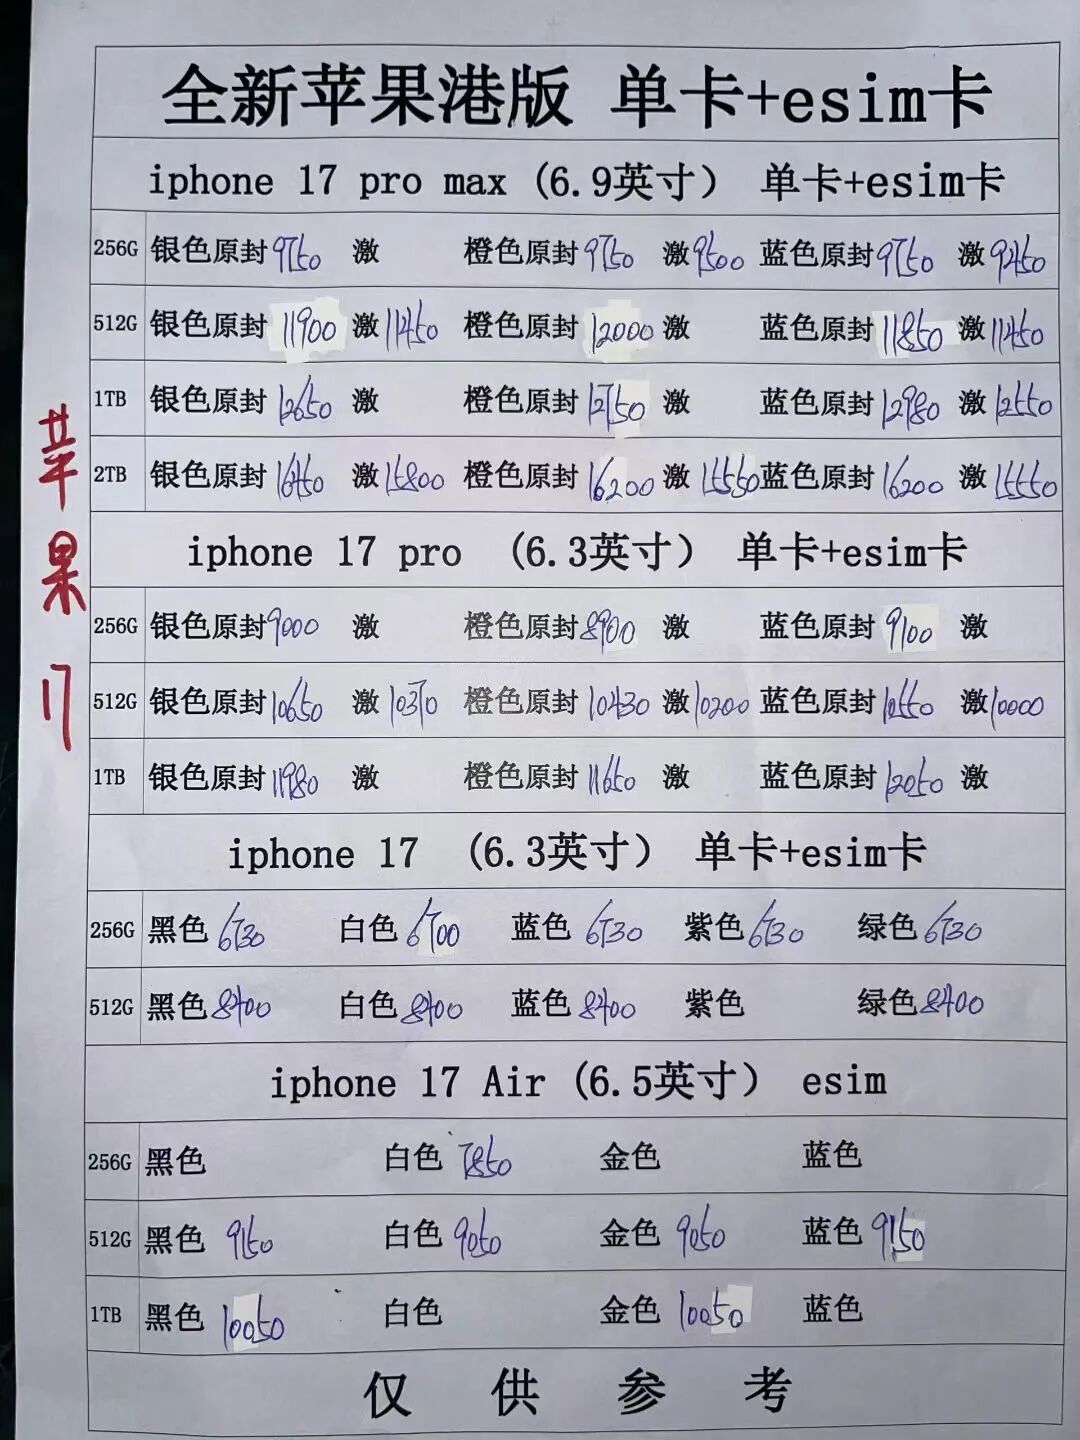 全新苹果港版 单卡+esim卡
iphone 17 pro max (6.9英寸） 单卡+esim卡
256G 银色原封9750 激 橙色原封9750 激9500 蓝色原封9750 激9450
512G 银色原封11900 激11450 橙色原封12000 激 蓝色原封11850 激11450
1TB 银色原封12650 激 橙色原封12750 激 蓝色原封12980 激12550
2TB 银色原封16450 激15800 橙色原封16200 激15550 蓝色原封16200 激15550
iphone 17 pro (6.3英寸） 单卡+esim卡
256G 银色原封9000 激 橙色原封8900 激 蓝色原封9100 激
512G 银色原封10650 激10370 橙色原封10430 激10200 蓝色原封10550 激10000
1TB 银色原封11980 激 橙色原封11650 激 蓝色原封12050 激
iphone 17 (6.3英寸） 单卡+esim卡
256G 黑色6730 白色6700 蓝色6730 紫色6730 绿色6730
512G 黑色8400 白色8400 蓝色8400 紫色 绿色8400
iphone 17 Air (6.5英寸） esim
256G 黑色 白色7850 金色 蓝色
512G 黑色9150 白色9050 金色9050 蓝色9150
1TB 黑色10050 白色 金色10050 蓝色
仅供参考
苹果17